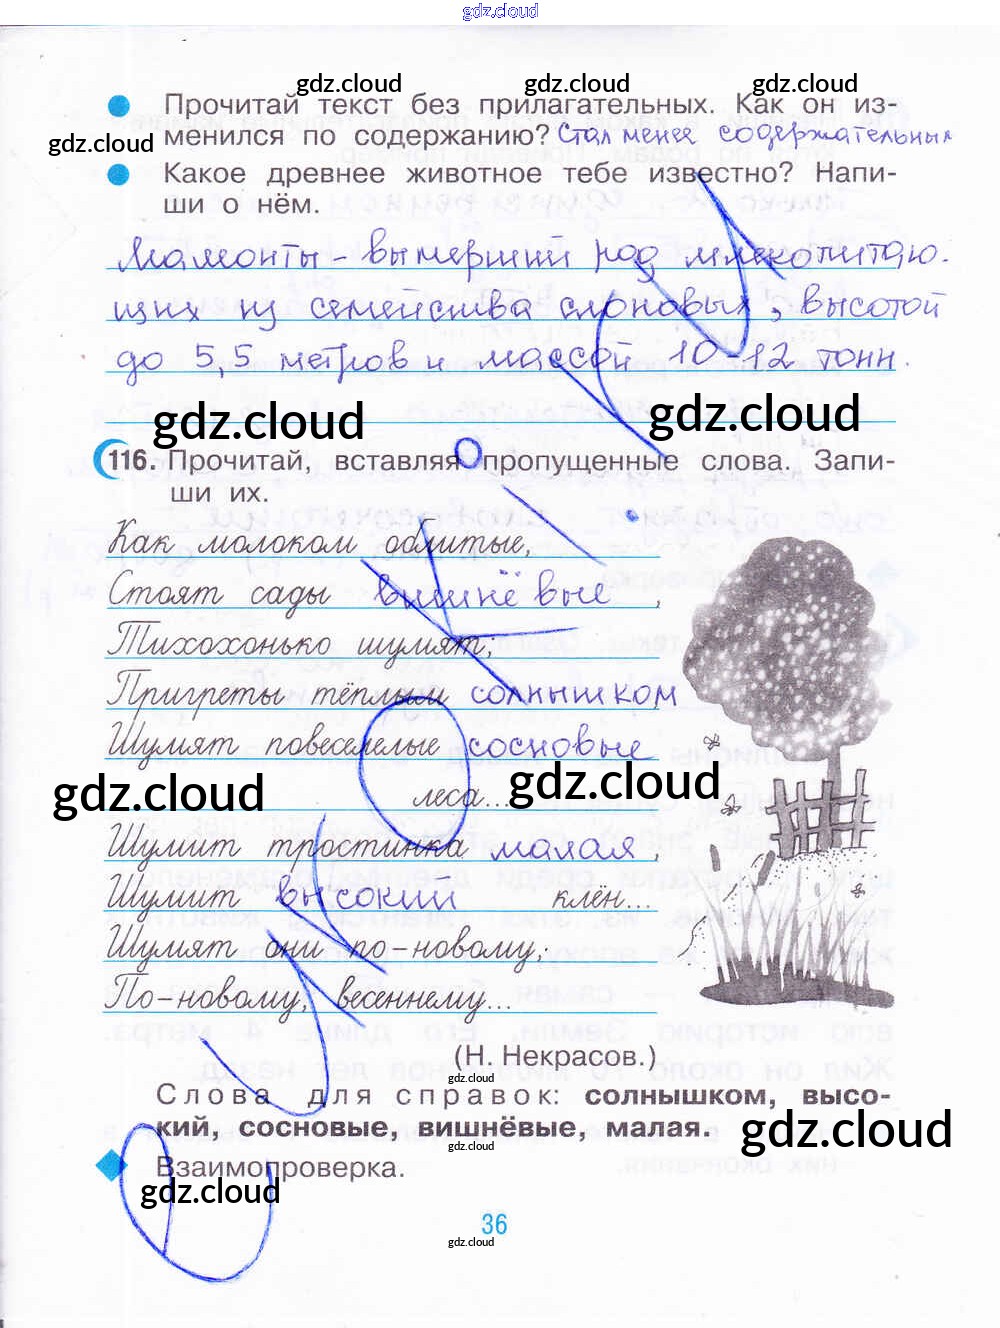 gdz.cloud
gdz.cloud gdz.cloud gdz.cloud
Прочитай текст без прилагательных. Как он из-
менился по содержанию? Стал менее содержательным
gdz.cloud
Какое древнее животное тебе известно? Напи-
ши о нём.
Мамонты - вымерший род млекопитаю.
щих из семейства слоновых, высотой
до 5,5 метров и массой 10-12 тонн.
gdz.cloud gdz.cloud
116. Прочитай, вставляя пропущенные слова. Запи-
ши их.
Как молоком облитые,
Стоят сады вишнёвые,
Тихохонько шумят;
Пригреты тёплым солнышком
Шумят повеселелые сосновые
леса...
gdz.cloud gdz.cloud
Шумит тростинка малая,
Шумит высокий клён...
Шумят они по-новому,
По-новому, весеннему...
(Н. Некрасов.)
gdz.cloud
Слова для справок: солнышком, высо-
кий, сосновые, вишнёвые, малая.
gdz.cloud
gdz.cloud
Взаимопроверка.
gdz.cloud
36
gdz.cloud